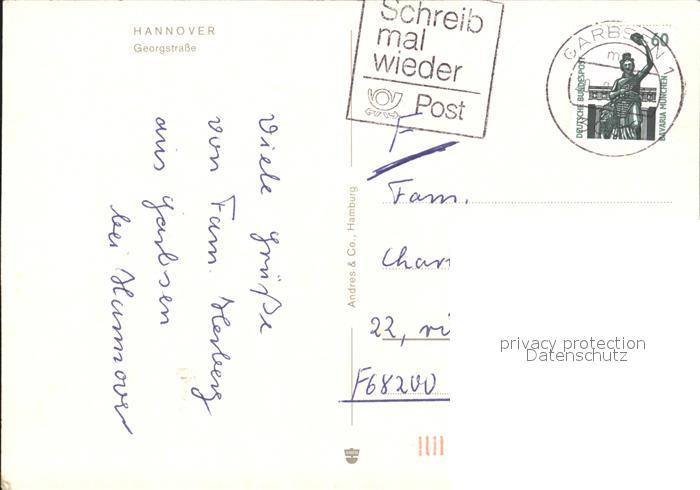 HANNOVER
Georgstraße
Viele Grüße
von Fam. Herberg
aus Garbsen
bei Hannover
Andres & Co., Hamburg
Schreib
mal
wieder
Post
GARBSEN 1
60
DEUTSCHE BUNDESPOST
BAVARIA MÜNCHEN
F
Fam.
22,
F68200
privacy protection
Datenschutz